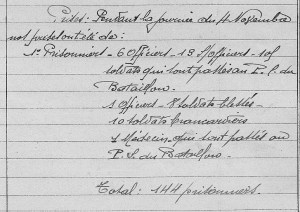 Prises: Pendant la journée du 4 Novembre
nos pertes ont été de:
1° Prisonniers - 6 Officiers - 13 S/officiers - 101
soldats qui sont passés au P. S. du
Bataillon.
3 Officiers - 8 soldats blessés
10 soldats brancardiers
1 Médecin qui sont passés au
P. S. du Bataillon.
Total: 144 prisonniers.